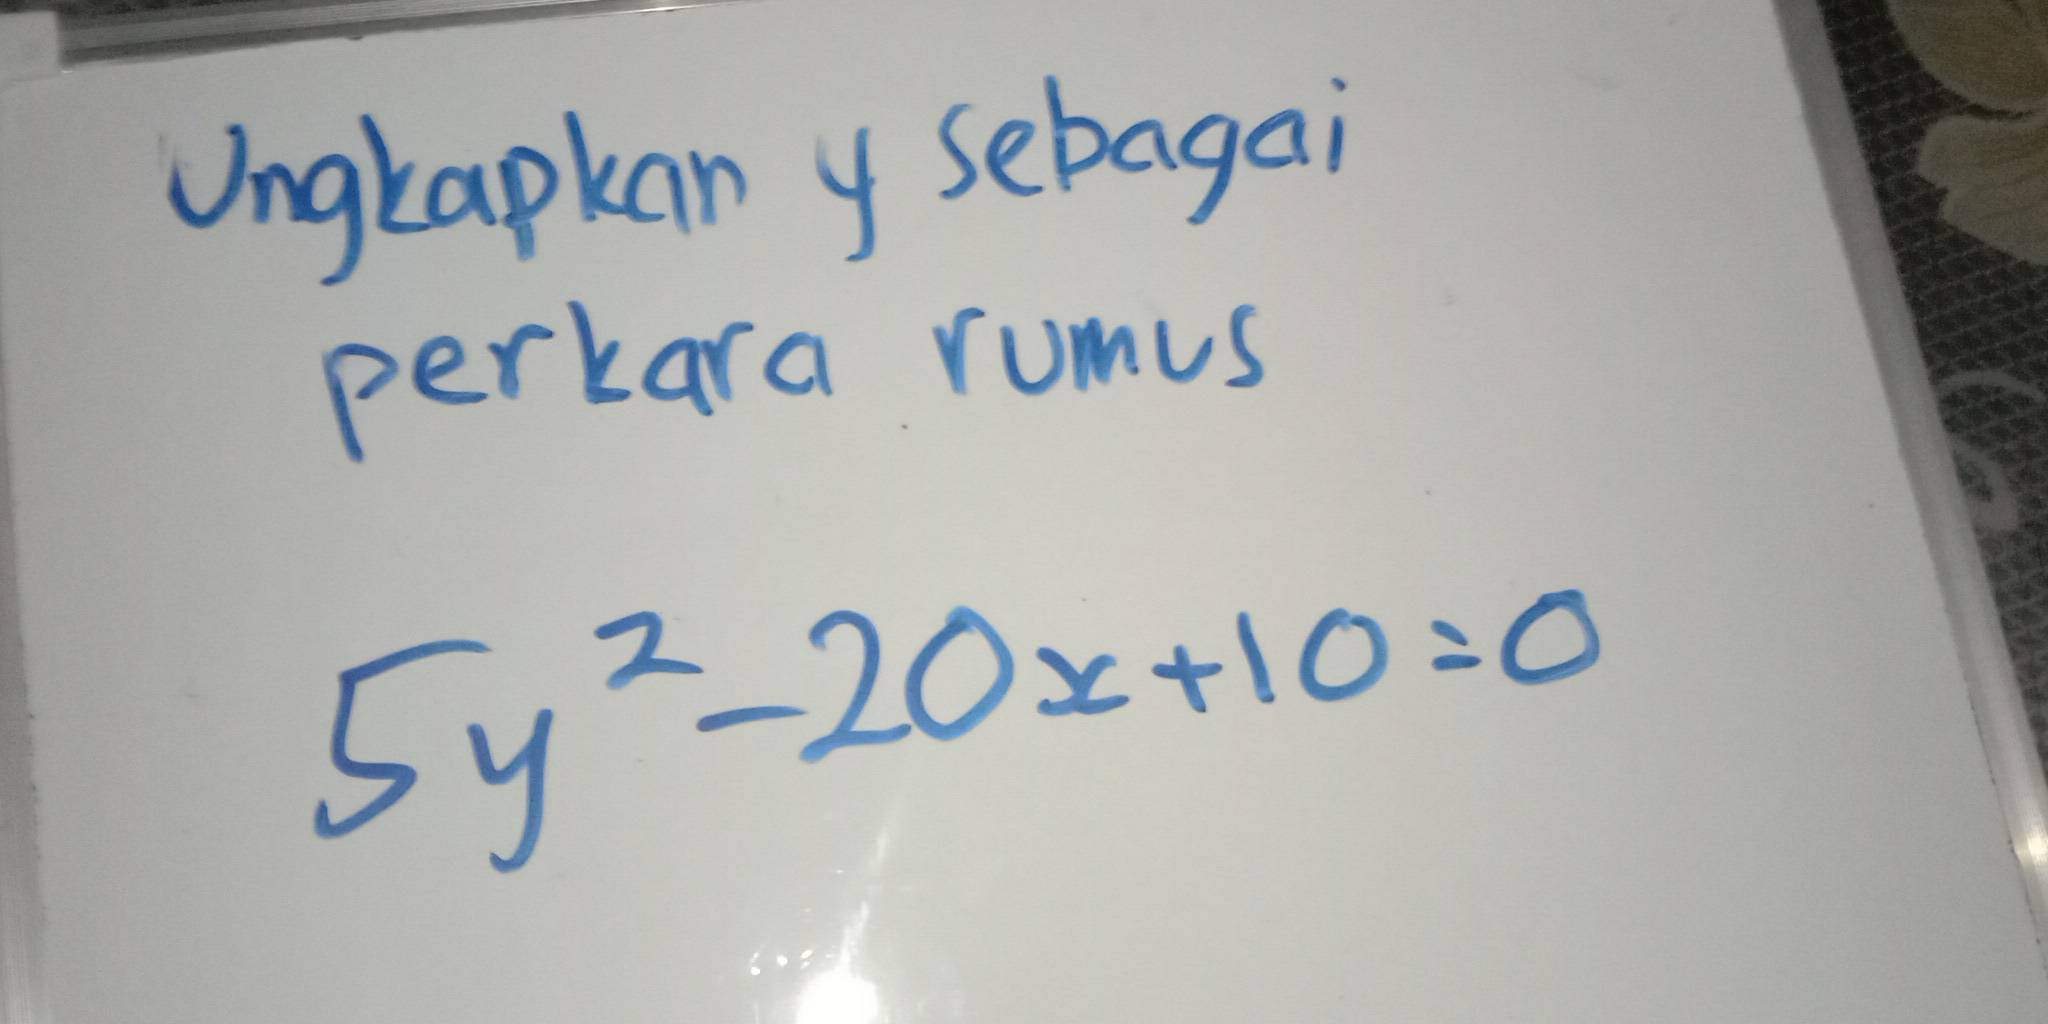 Ungkapkan y sebagai
perkara rumus
5y²-20x+10=0